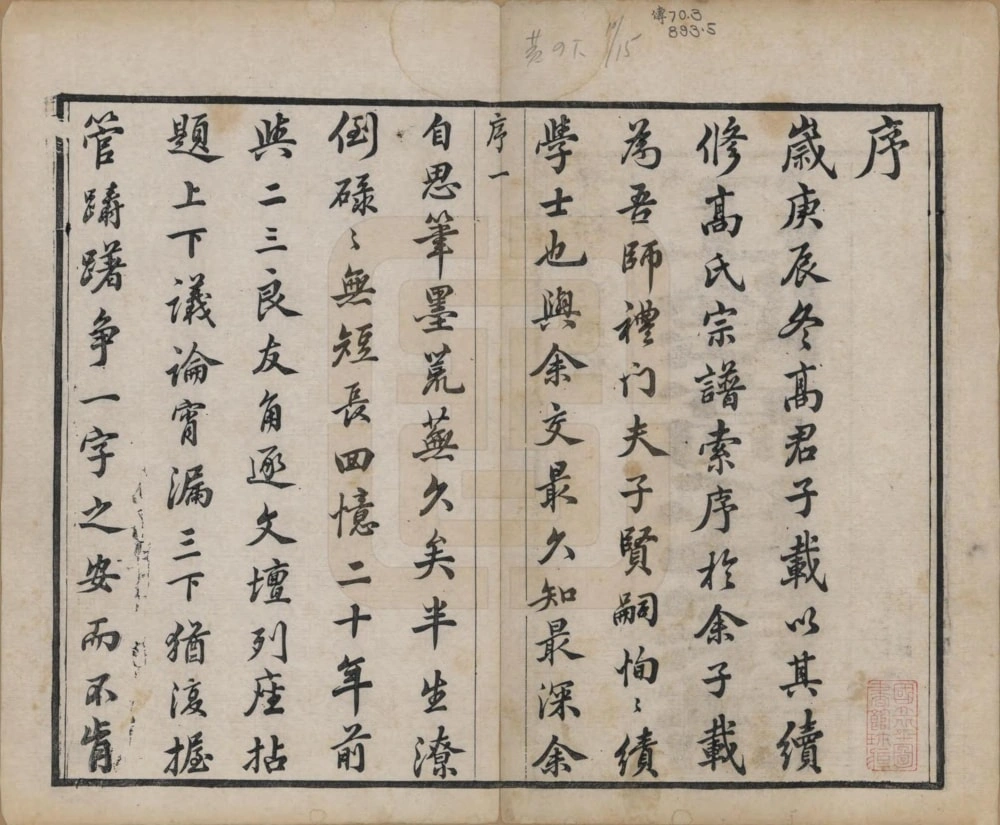 傳70.3
893.5
11/15
序
歲庚辰冬高君子載以其續
修高氏宗譜索序於余子載
為吾師禮门夫子賢嗣恂〻績
學士也與余交最久知最深余
序一
自思筆墨荒蕪久矣半生潦
倒碌〻無短長回憶二十年前
與二三良友角逐文壇列座拈
題上下議論宵漏三下猶復握
管躊躇争一字之安而不肯